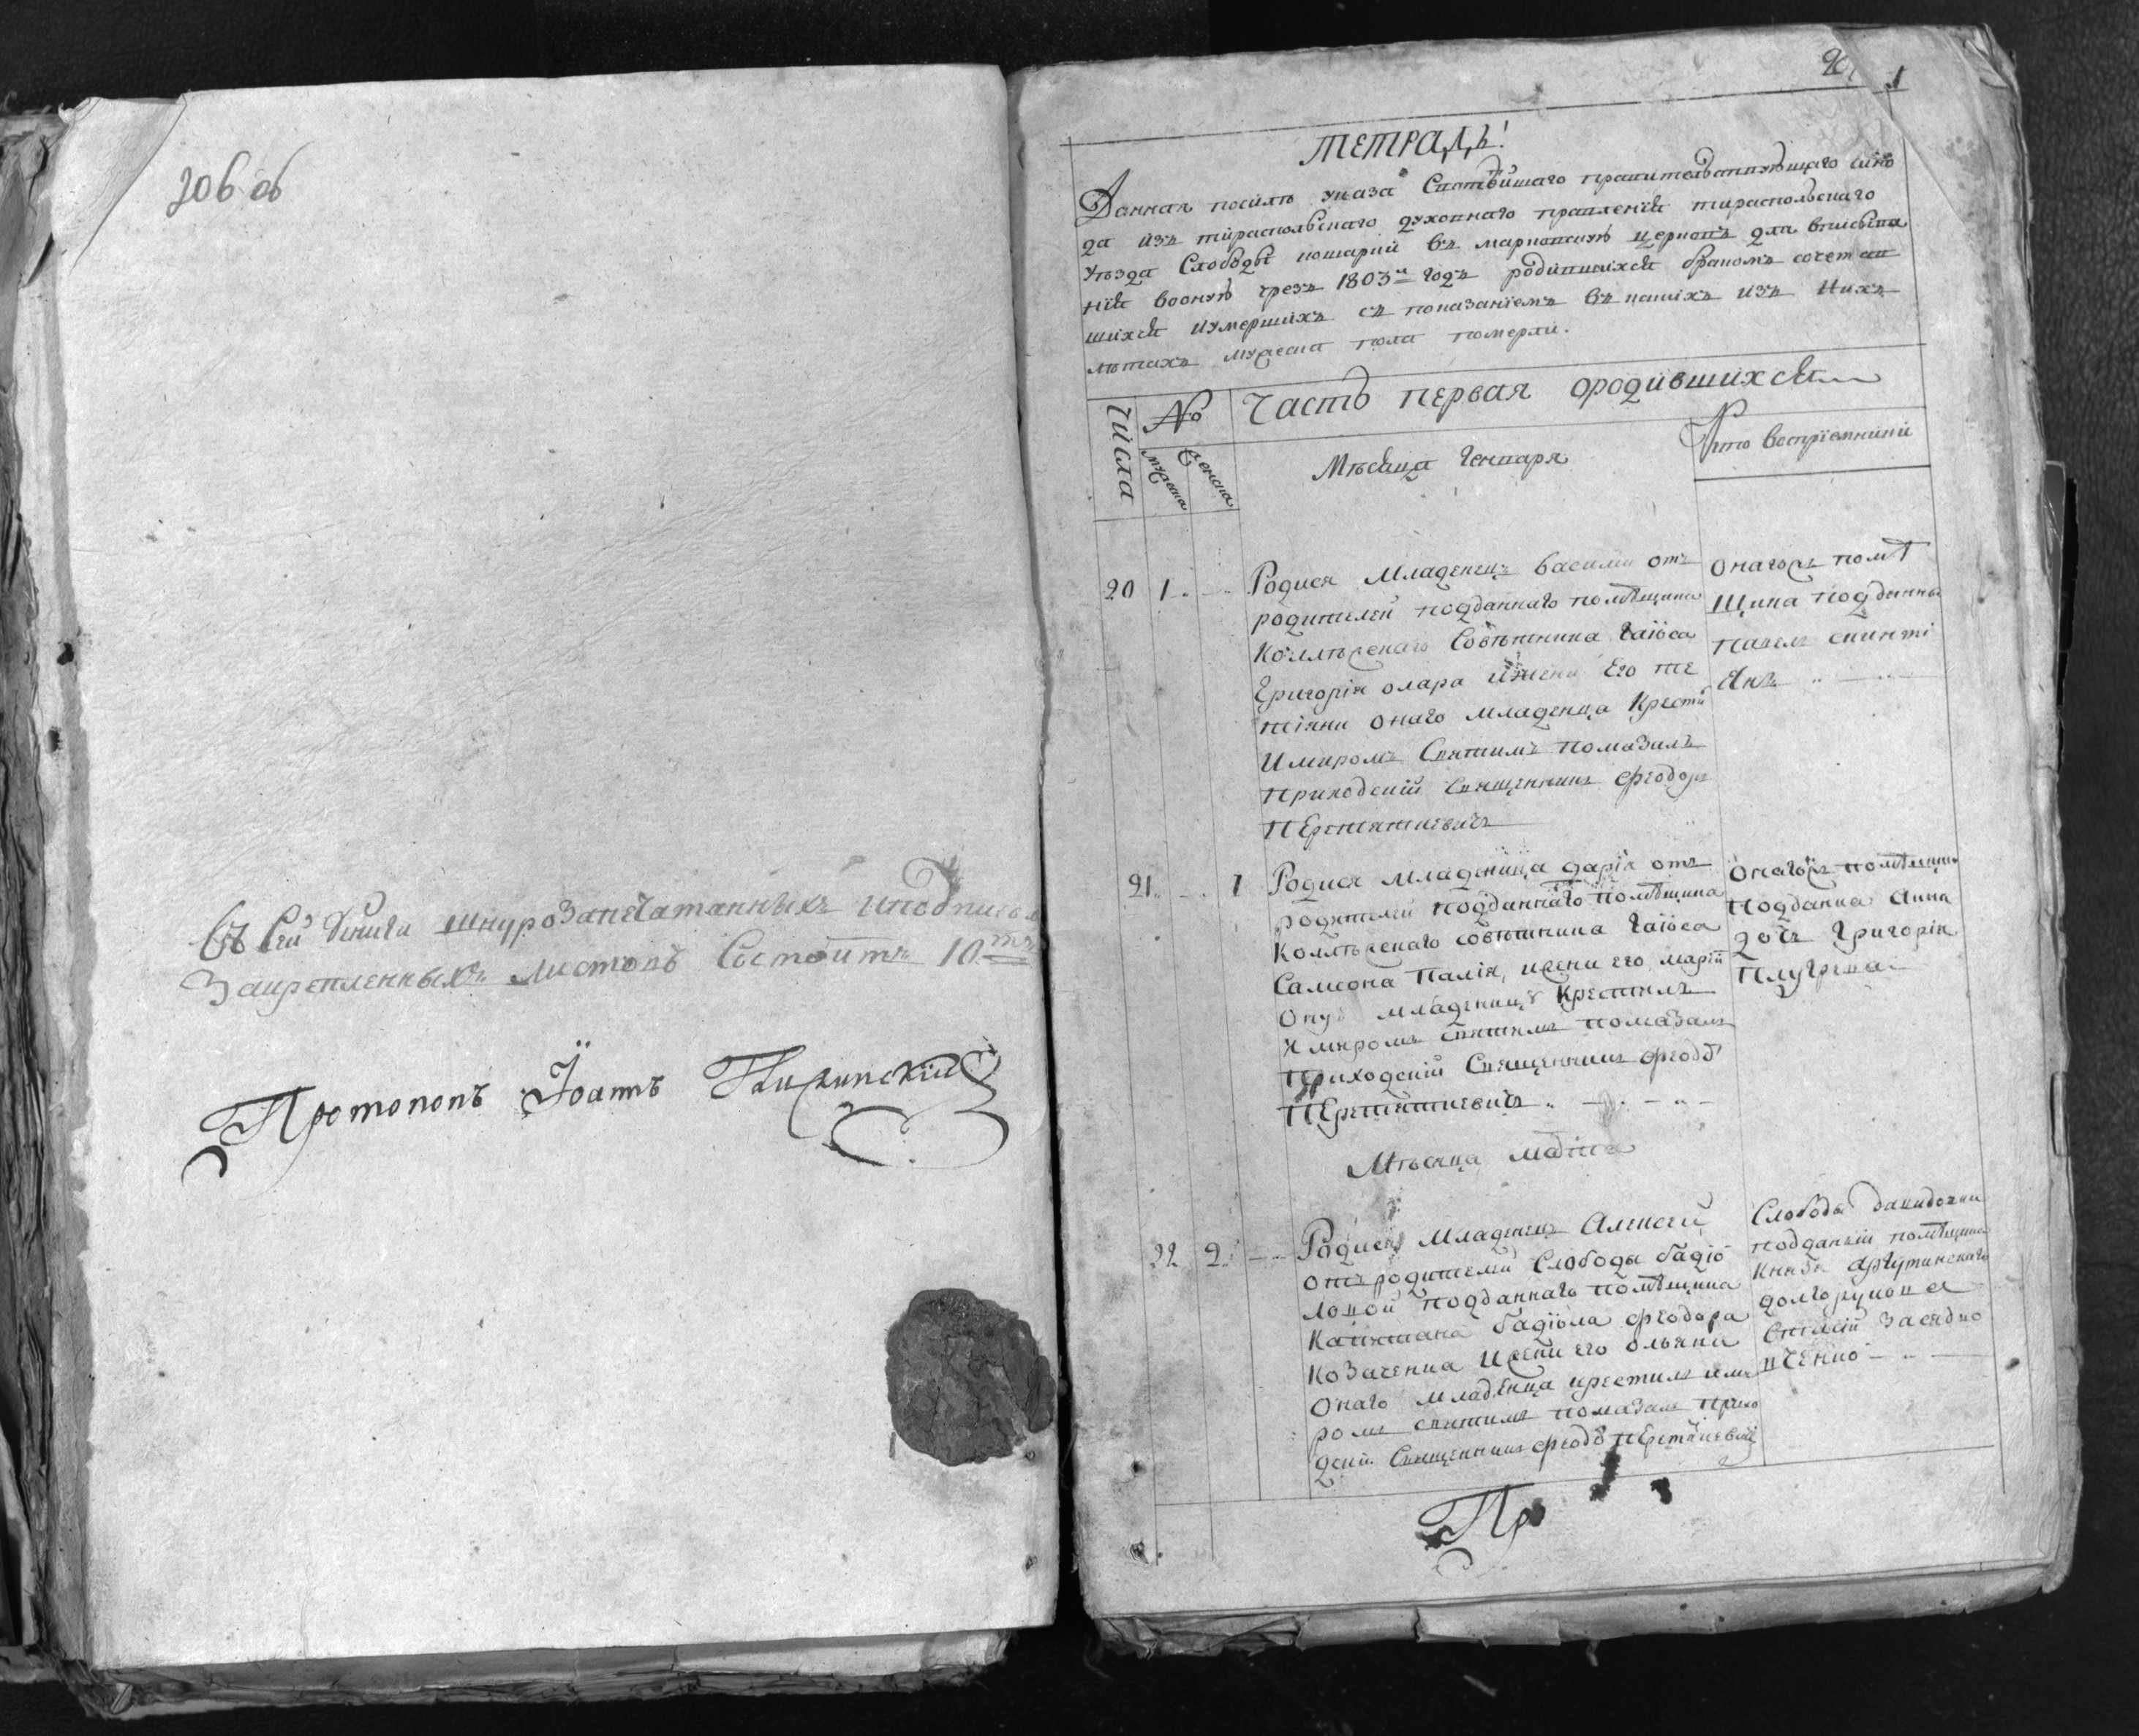 206 об
Въ сей книги шнурозапечатанныхъ иподписом
Закрепленныхъ листовъ Состоитъ 10тъ
Протопопъ Іоаннъ
1
ТЕТРАДЬ!
Данная посилѣ указа Святѣйшаго правителствующаго сѵно
да изъ тираспольскаго духовнаго правленія тираспольскаго
уѣзда Слободы комарни въ марковскую церковъ для вписыва
нія вооную чрезъ 1803й годъ родившихся бракомъ сочетав
шихся иумершихъ съ показаніемъ въ какихъ изъ нихъ
лѣтахъ мужеска пола померли.
Числа
№
Часть первая ородившихся
мужеска
женска
Мѣсяца Генваря
Кто восприемники
20 1
Родися Младенецъ Василии отъ
родителей подданнаго помѣщика
Коллѣжскаго Совѣтника Гаіоса
Григорія олара ижени Его те
тіяни онаго младенца Крести
Имиромъ Святимъ помазилъ
Приходскій священникъ Феодоръ
Перетятковичъ
Онагожъ помѣ
щика подданны
павелъ скинті
янъ
21 1
Родися младеница дарія отъ
родителей подданнаго помѣщика
Коллѣжскаго совѣтника Гаіоса
Самсона Палія, ижени его маріи
Ону младеницу Крестилъ
имиромъ святимъ помазалъ
Приходскій Священникъ феодо
Перетятковичъ
Онагожъ помѣщик
подданна Анна
дочъ Григорія
плугрека
Мѣсяца маіа
22 2
Родися Младенец Алексей
отъ родителей Слободы бадіо
ловой подданнаго помѣщика
Капитана бадіола феодора
Козаченка ижени его ольяни
Онаго младенца крестилъ ими
ромъ святимъ помазалъ прихо
дскій Священникъ феодо Перетятковичъ
Слободы давидовки
подданій помѣщика
Князя Аргутинскаго
долгорукова
Пр